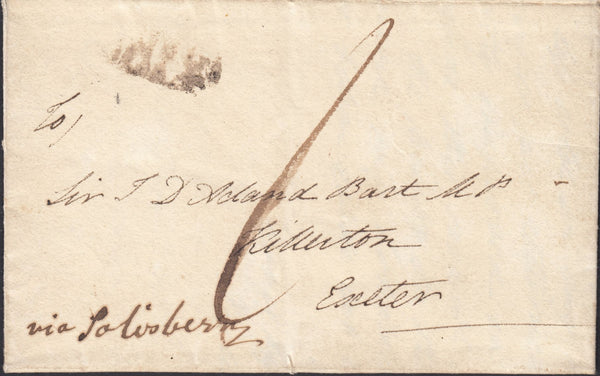 To/
Sir T D Acland Bart M P
Killerton
Exeter
via Salisberry